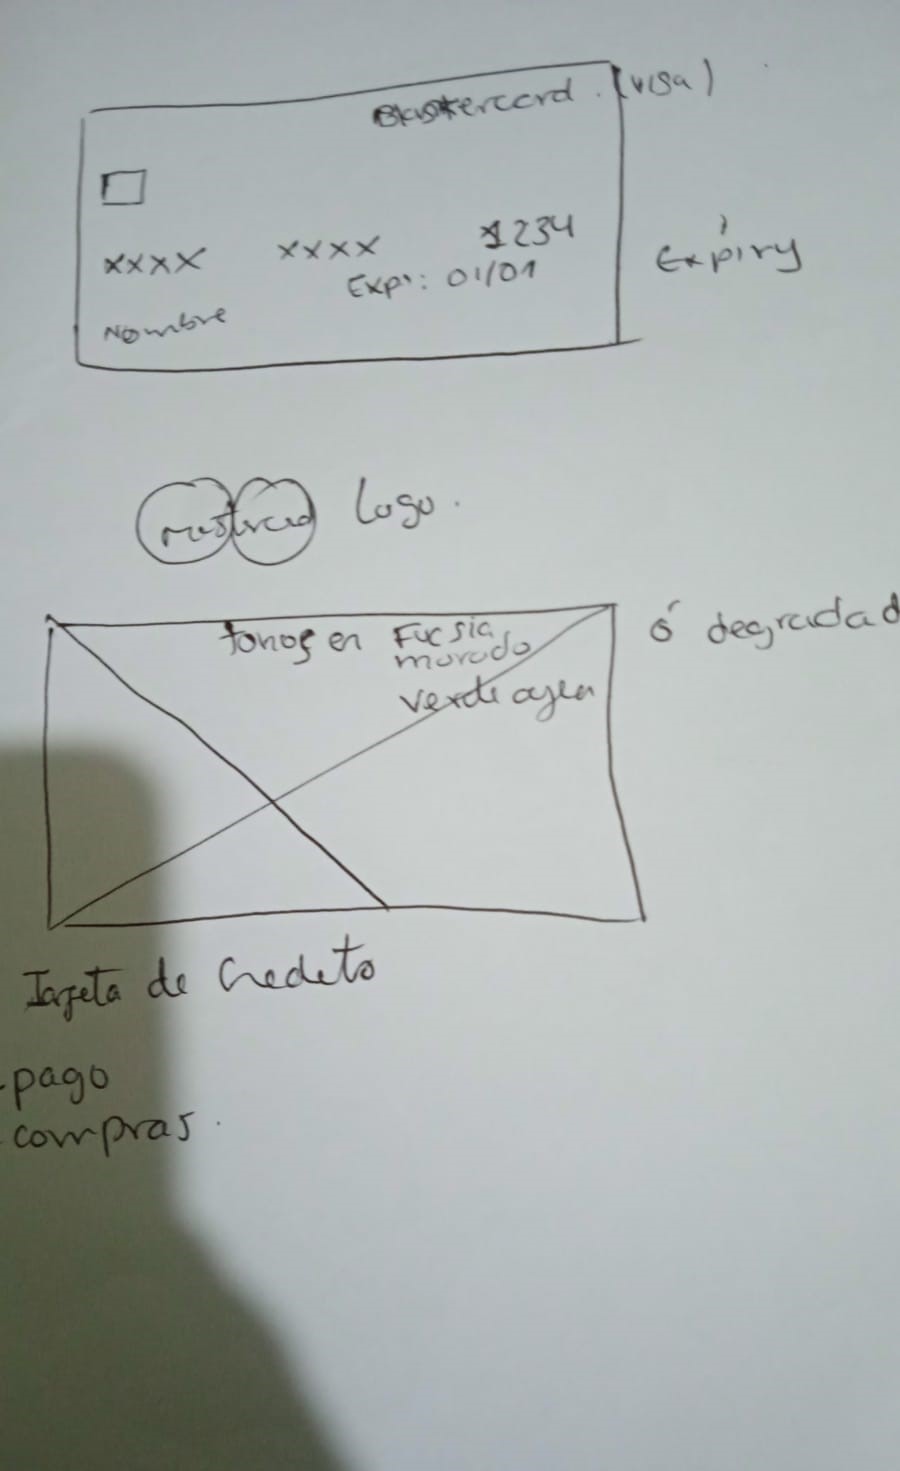 Mastercard. (visa)
xxxx xxxx 1234
Expi: 01/01
Expiry
Nombre
mastercad Logo.
tonos en Fucsia
morado
verde
ó degradad
Tarjeta de Credeto
- pago
- compras.